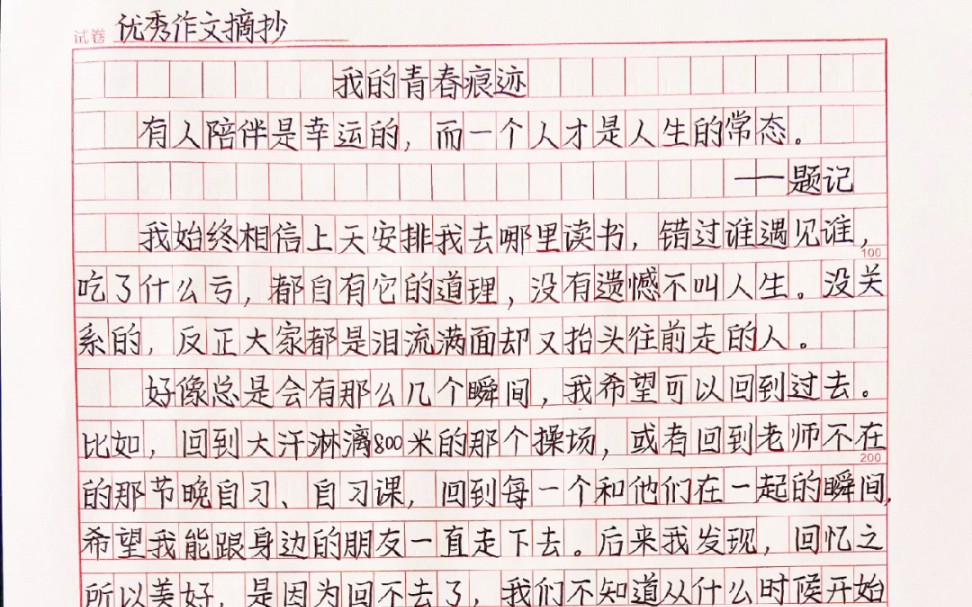 试卷 优秀作文摘抄
我的青春痕迹
有人陪伴是幸运的，而一个人才是人生的常态。
——题记
我始终相信上天安排我去哪里读书，错过谁遇见谁，
100
吃了什么亏，都自有它的道理，没有遗憾不叫人生。没关
系的，反正大家都是泪流满面却又抬头往前走的人。
好像总是会有那么几个瞬间，我希望可以回到过去。
比如，回到大汗淋漓800米的那个操场，或者回到老师不在
200
的那节晚自习、自习课，回到每一个和他们在一起的瞬间，
希望我能跟身边的朋友一直走下去。后来我发现，回忆之
所以美好，是因为回不去了，我们不知道从什么时候开始